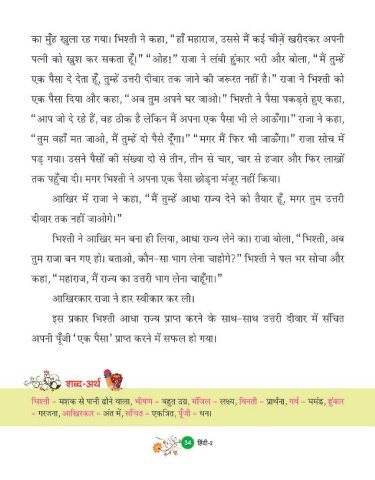 का मुँह खुला रह गया। भिश्ती ने कहा, “हाँ महाराज, उससे मैं कई चीज़ें खरीदकर अपनी
पत्नी को खुश कर सकता हूँ।” “ओह!” राजा ने लंबी हुंकार भरी और बोला, “मैं तुम्हें
एक पैसा दे देता हूँ, तुम्हें उत्तरी दीवार तक जाने की जरूरत नहीं है।” राजा ने भिश्ती को
एक पैसा दिया और कहा, “अब तुम अपने घर जाओ।” भिश्ती ने पैसा पकड़ते हुए कहा,
“आप जो दे रहे हैं, वह ठीक है लेकिन मैं अपना एक पैसा भी ले आऊँगा।” राजा ने कहा,
“तुम वहाँ मत जाओ, मैं तुम्हें दो पैसे दूँगा।” “मगर मैं फिर भी जाऊँगा।” राजा सोच में
पड़ गया। उसने पैसों की संख्या दो से तीन, तीन से चार, चार से हजार और फिर लाखों
तक पहुँचा दी। मगर भिश्ती ने अपना एक पैसा छोड़ना मंजूर नहीं किया।
आखिर में राजा ने कहा, “मैं तुम्हें आधा राज्य देने को तैयार हूँ, मगर तुम उत्तरी
दीवार तक नहीं जाओगे।”
भिश्ती ने आखिर मन बना ही लिया, आधा राज्य लेने का। राजा बोला, “भिश्ती, अब
तुम राजा बन गए हो। बताओ, कौन-सा भाग लेना चाहोगे?” भिश्ती ने पल भर सोचा और
कहा, “महाराज, मैं राज्य का उत्तरी भाग लेना चाहूँगा।”
आखिरकार राजा ने हार स्वीकार कर ली।
इस प्रकार भिश्ती आधा राज्य प्राप्त करने के साथ-साथ उत्तरी दीवार में संचित
अपनी पूँजी ‘एक पैसा’ प्राप्त करने में सफल हो गया।
शब्द-अर्थ
भिश्ती – मशक से पानी ढोने वाला, भीषण – बहुत उग्र, मंजिल – लक्ष्य, विनती – प्रार्थना, गर्व – घमंड, हुंकार
– गरजना, आखिरकार – अंत में, संचित – एकत्रित, पूँजी – धन।
34 हिंदी-2